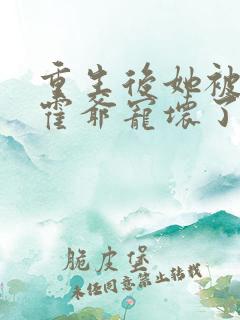 重生后她被
霍爷宠坏了
脆皮堡
未经同意禁止转载